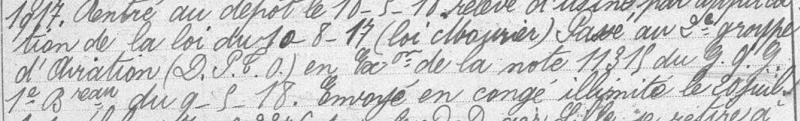 1917. Rentré au dépôt le 10-5-18 relevé d'usine par applica
tion de la loi du 10 8-17 (loi Mourier) Passé au 2e groupe
d'Aviation (D. P. E. O.) en Exon de la note 11315 du G. Q. G.
1e Breau du 9-5-18. Envoyé en congé illimité le juil
se retire à